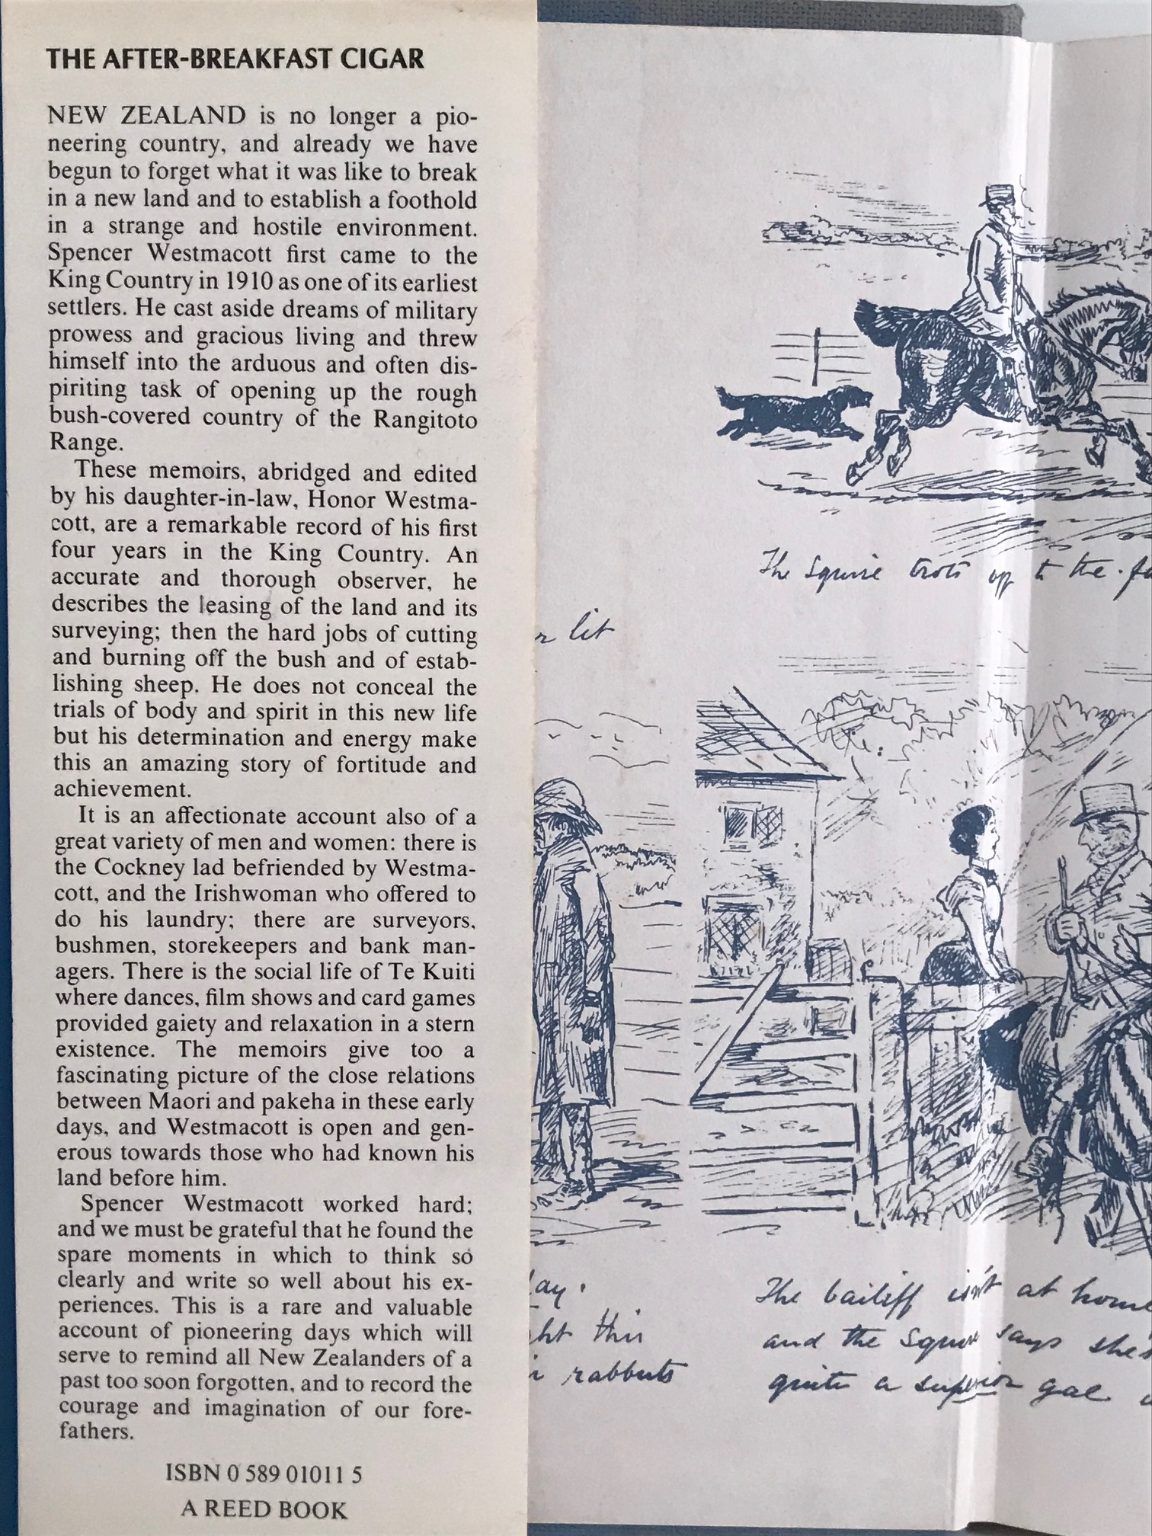 THE AFTER-BREAKFAST CIGAR
NEW ZEALAND is no longer a pio-
neering country, and already we have
begun to forget what it was like to break
in a new land and to establish a foothold
in a strange and hostile environment.
Spencer Westmacott first came to the
King Country in 1910 as one of its earliest
settlers. He cast aside dreams of military
prowess and gracious living and threw
himself into the arduous and often dis-
piriting task of opening up the rough
bush-covered country of the Rangitoto
Range.
These memoirs, abridged and edited
by his daughter-in-law, Honor Westma-
cott, are a remarkable record of his first
four years in the King Country. An
accurate and thorough observer, he
describes the leasing of the land and its
surveying; then the hard jobs of cutting
and burning off the bush and of estab-
lishing sheep. He does not conceal the
trials of body and spirit in this new life
but his determination and energy make
this an amazing story of fortitude and
achievement.
It is an affectionate account also of a
great variety of men and women: there is
the Cockney lad befriended by Westma-
cott, and the Irishwoman who offered to
do his laundry; there are surveyors,
bushmen, storekeepers and bank man-
agers. There is the social life of Te Kuiti
where dances, film shows and card games
provided gaiety and relaxation in a stern
existence. The memoirs give too a
fascinating picture of the close relations
between Maori and pakeha in these early
days, and Westmacott is open and gen-
erous towards those who had known his
land before him.
Spencer Westmacott worked hard;
and we must be grateful that he found the
spare moments in which to think so
clearly and write so well about his ex-
periences. This is a rare and valuable
account of pioneering days which will
serve to remind all New Zealanders of a
past too soon forgotten, and to record the
courage and imagination of our fore-
fathers.
ISBN 0 589 01011 5
A REED BOOK
The Squire trots up to the
lit
this
rabbuts
The bailiff isn't at home
and the Squire says she's
quite a superior gal